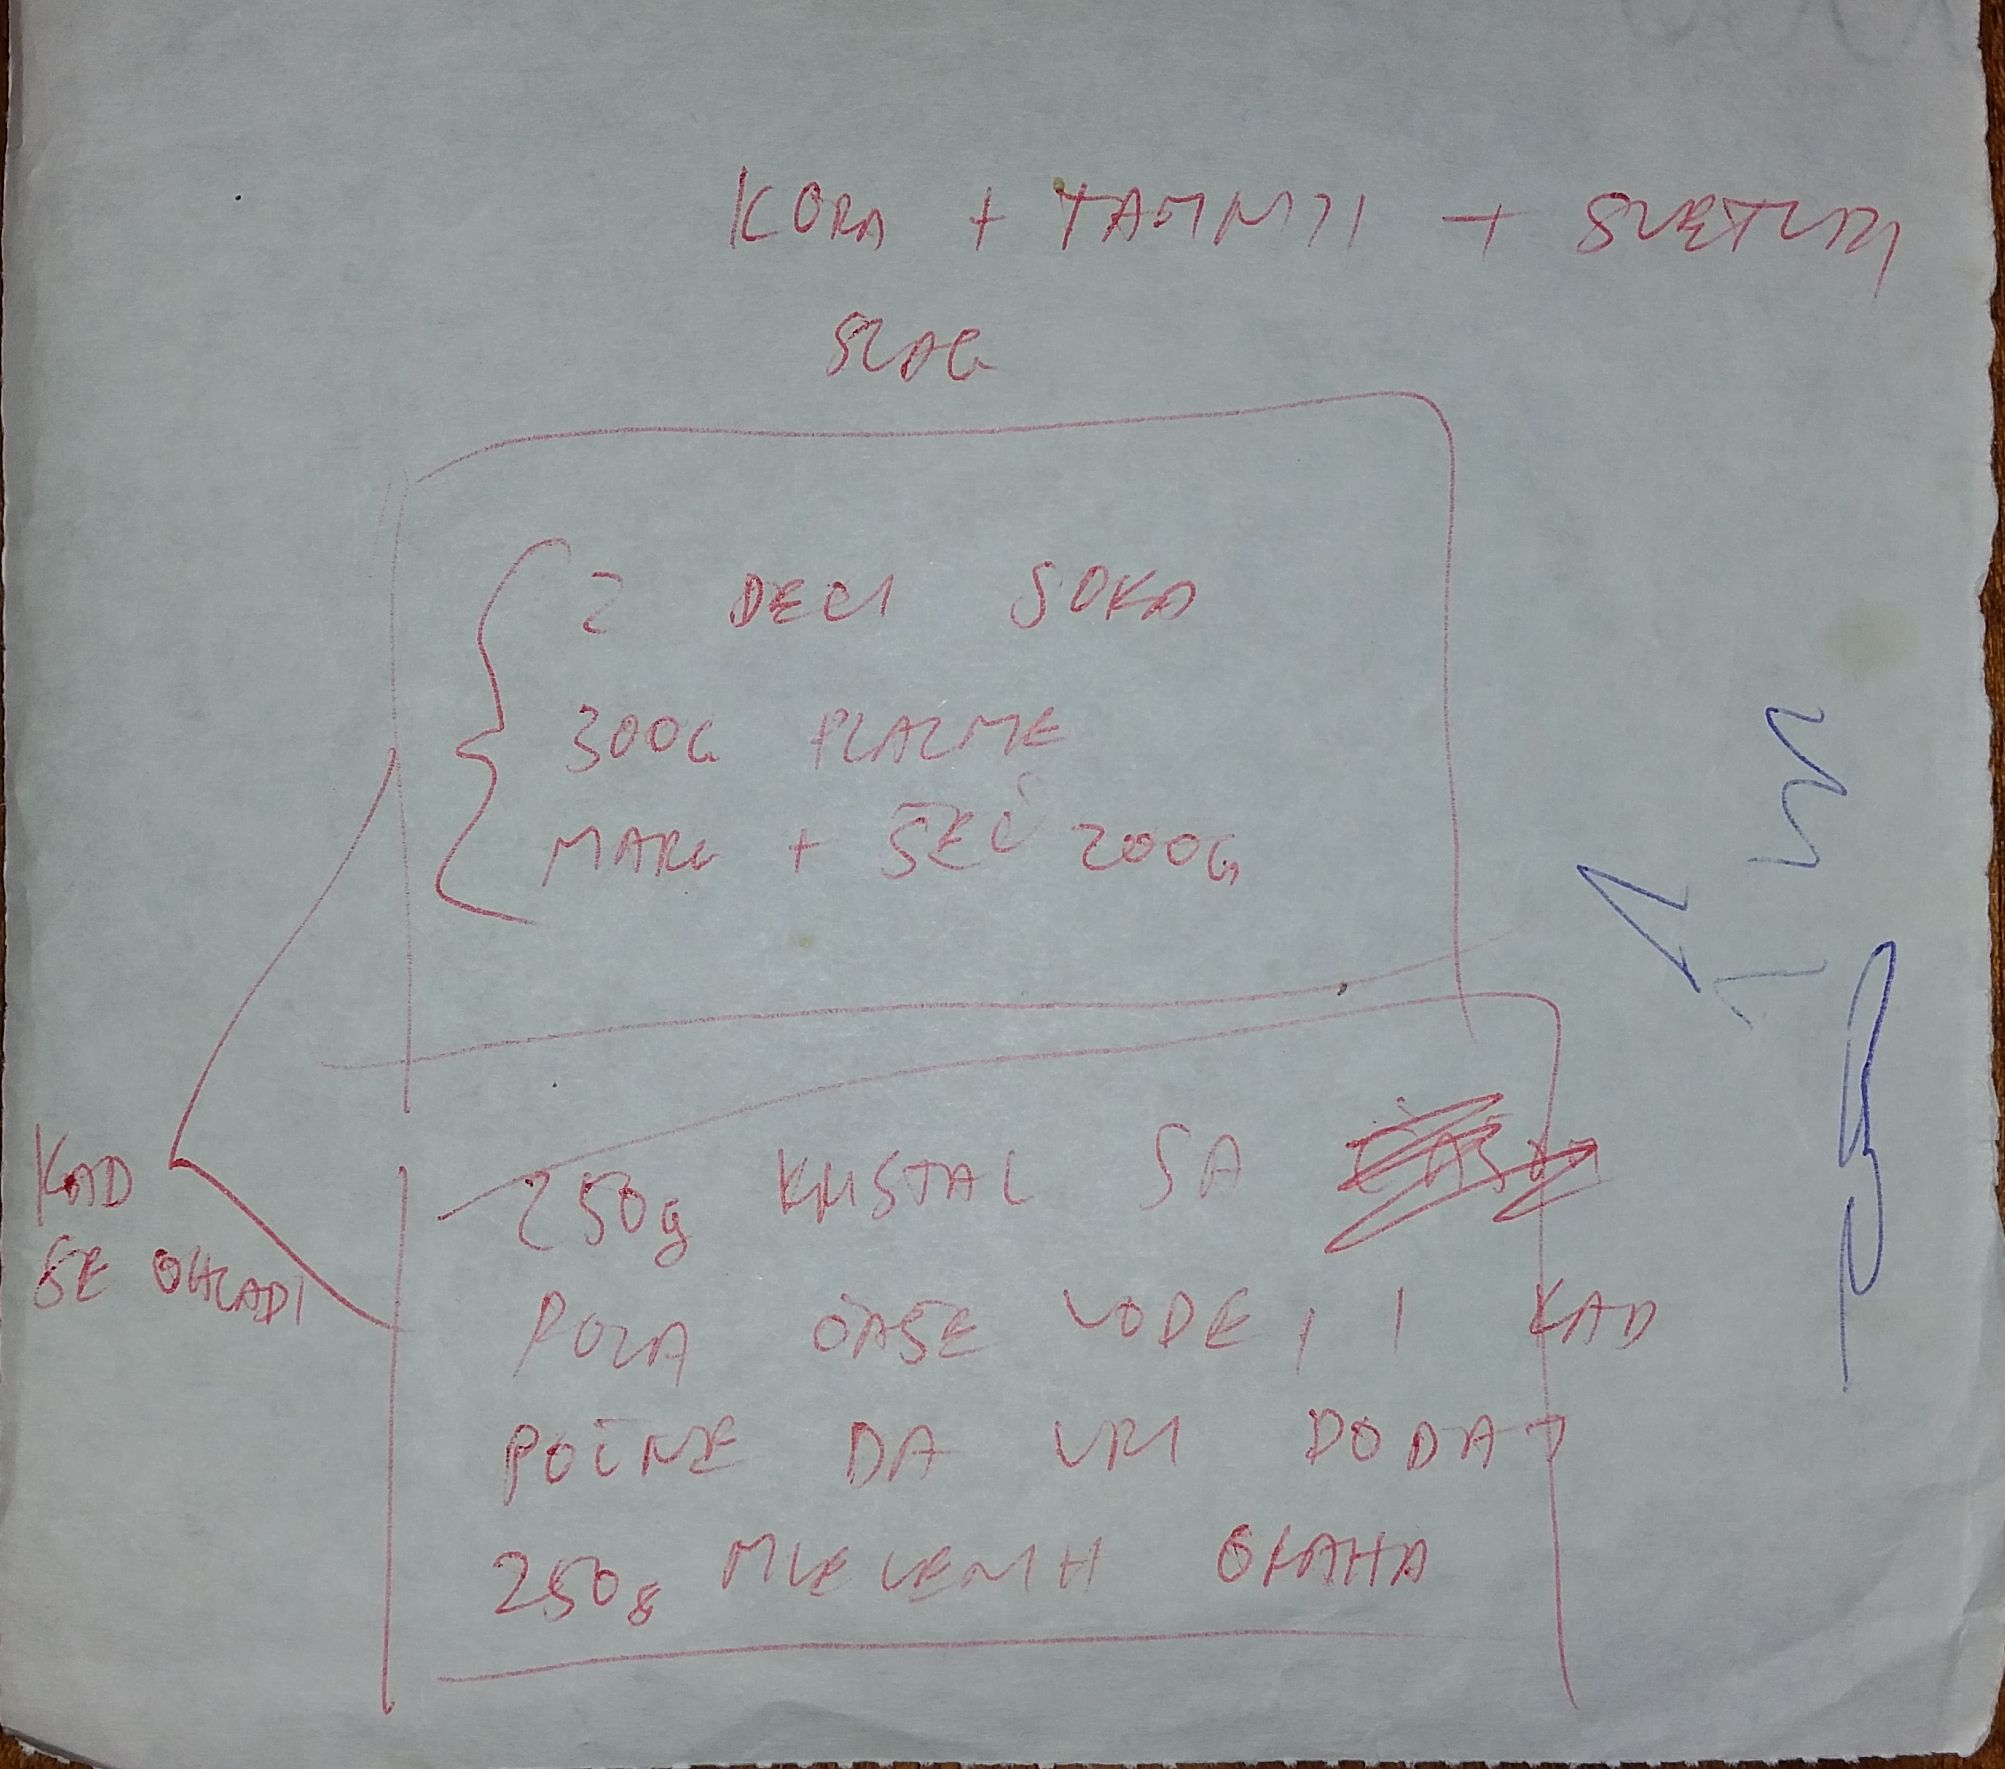 KORA + TAMNIJI + SVETLIJI
ŠLAG
2 DECI SOKA
300G PLAZME
MARG + ŠEĆ 200G
KAD
SE OHLADI
250g KRISTAL SA
POLA ČAŠE VODE, I KAD
POČNE DA VRI DODAT
250g MLEVENIH ORAHA